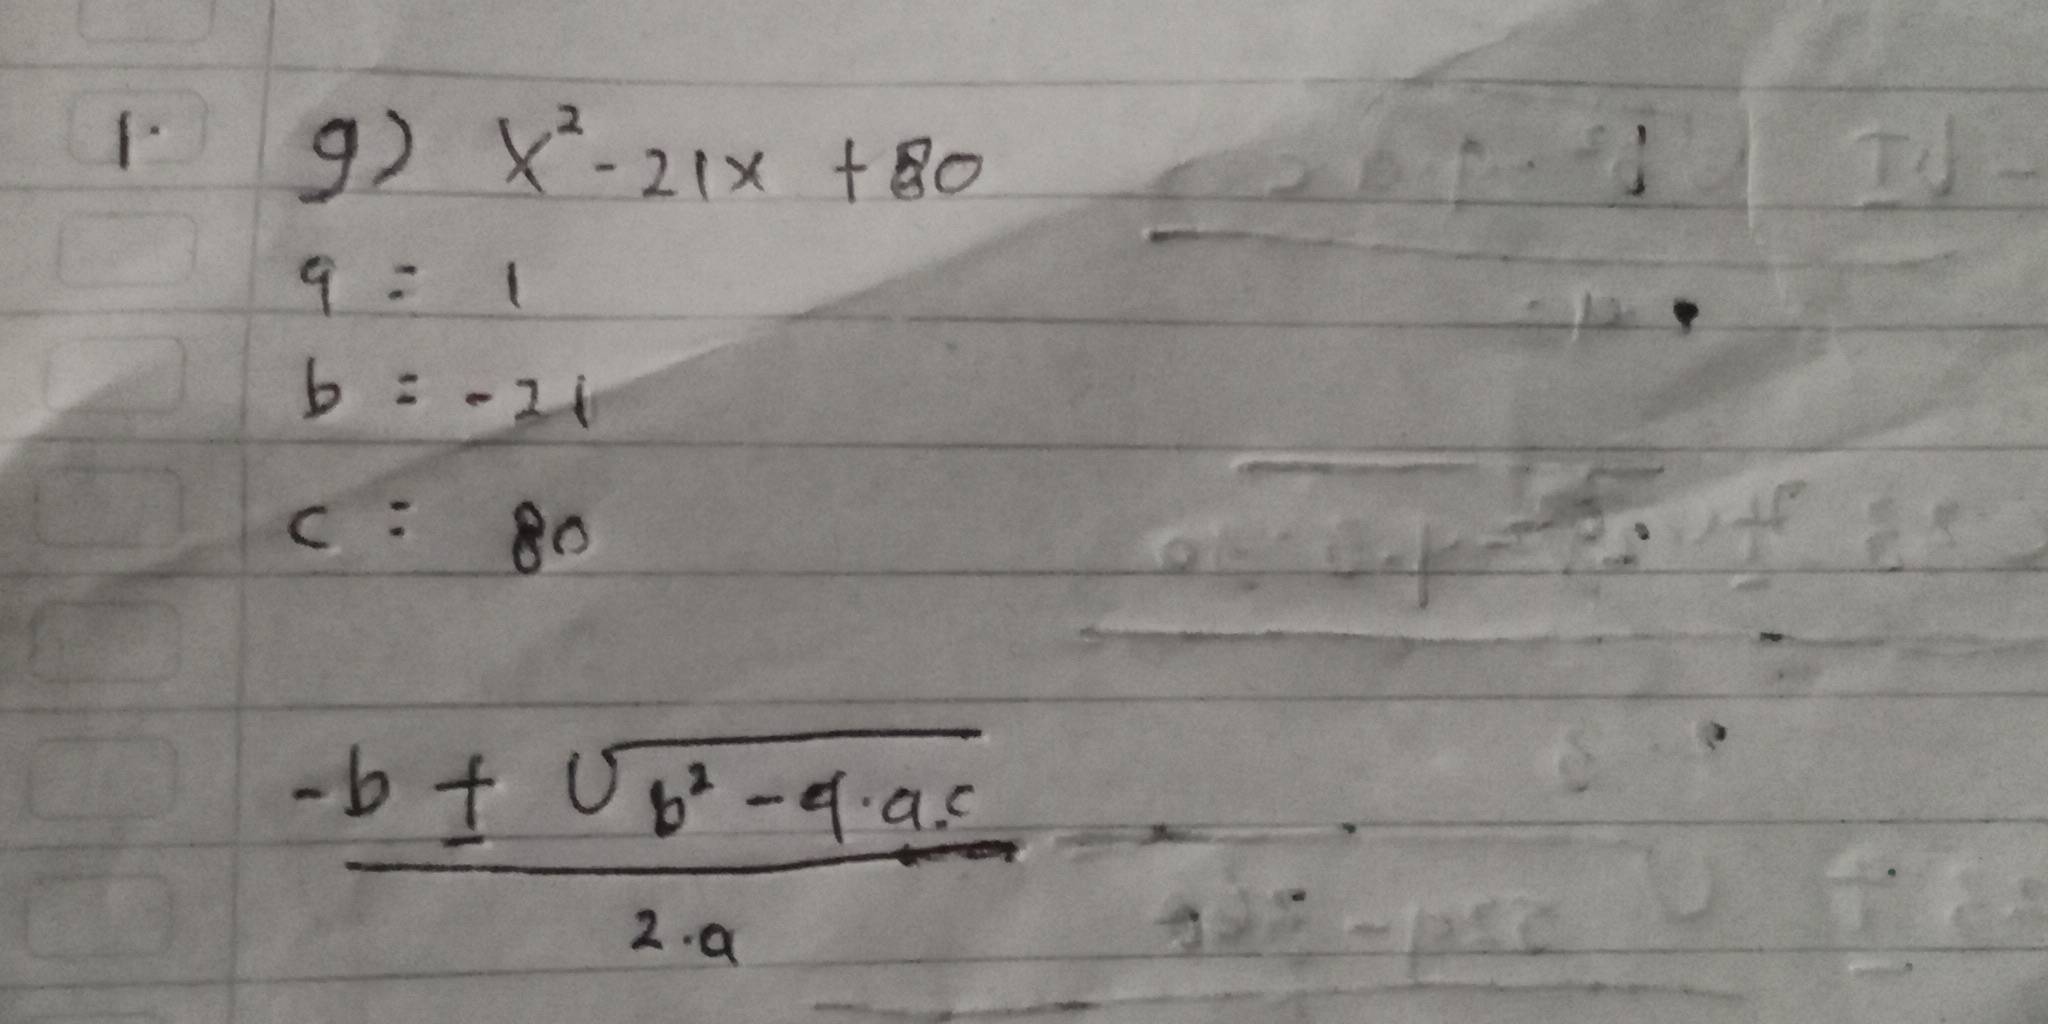 1. g) x² - 21x + 80
a = 1
b = -21
c = 80
-b ± √b² - 4.a.c
2.a